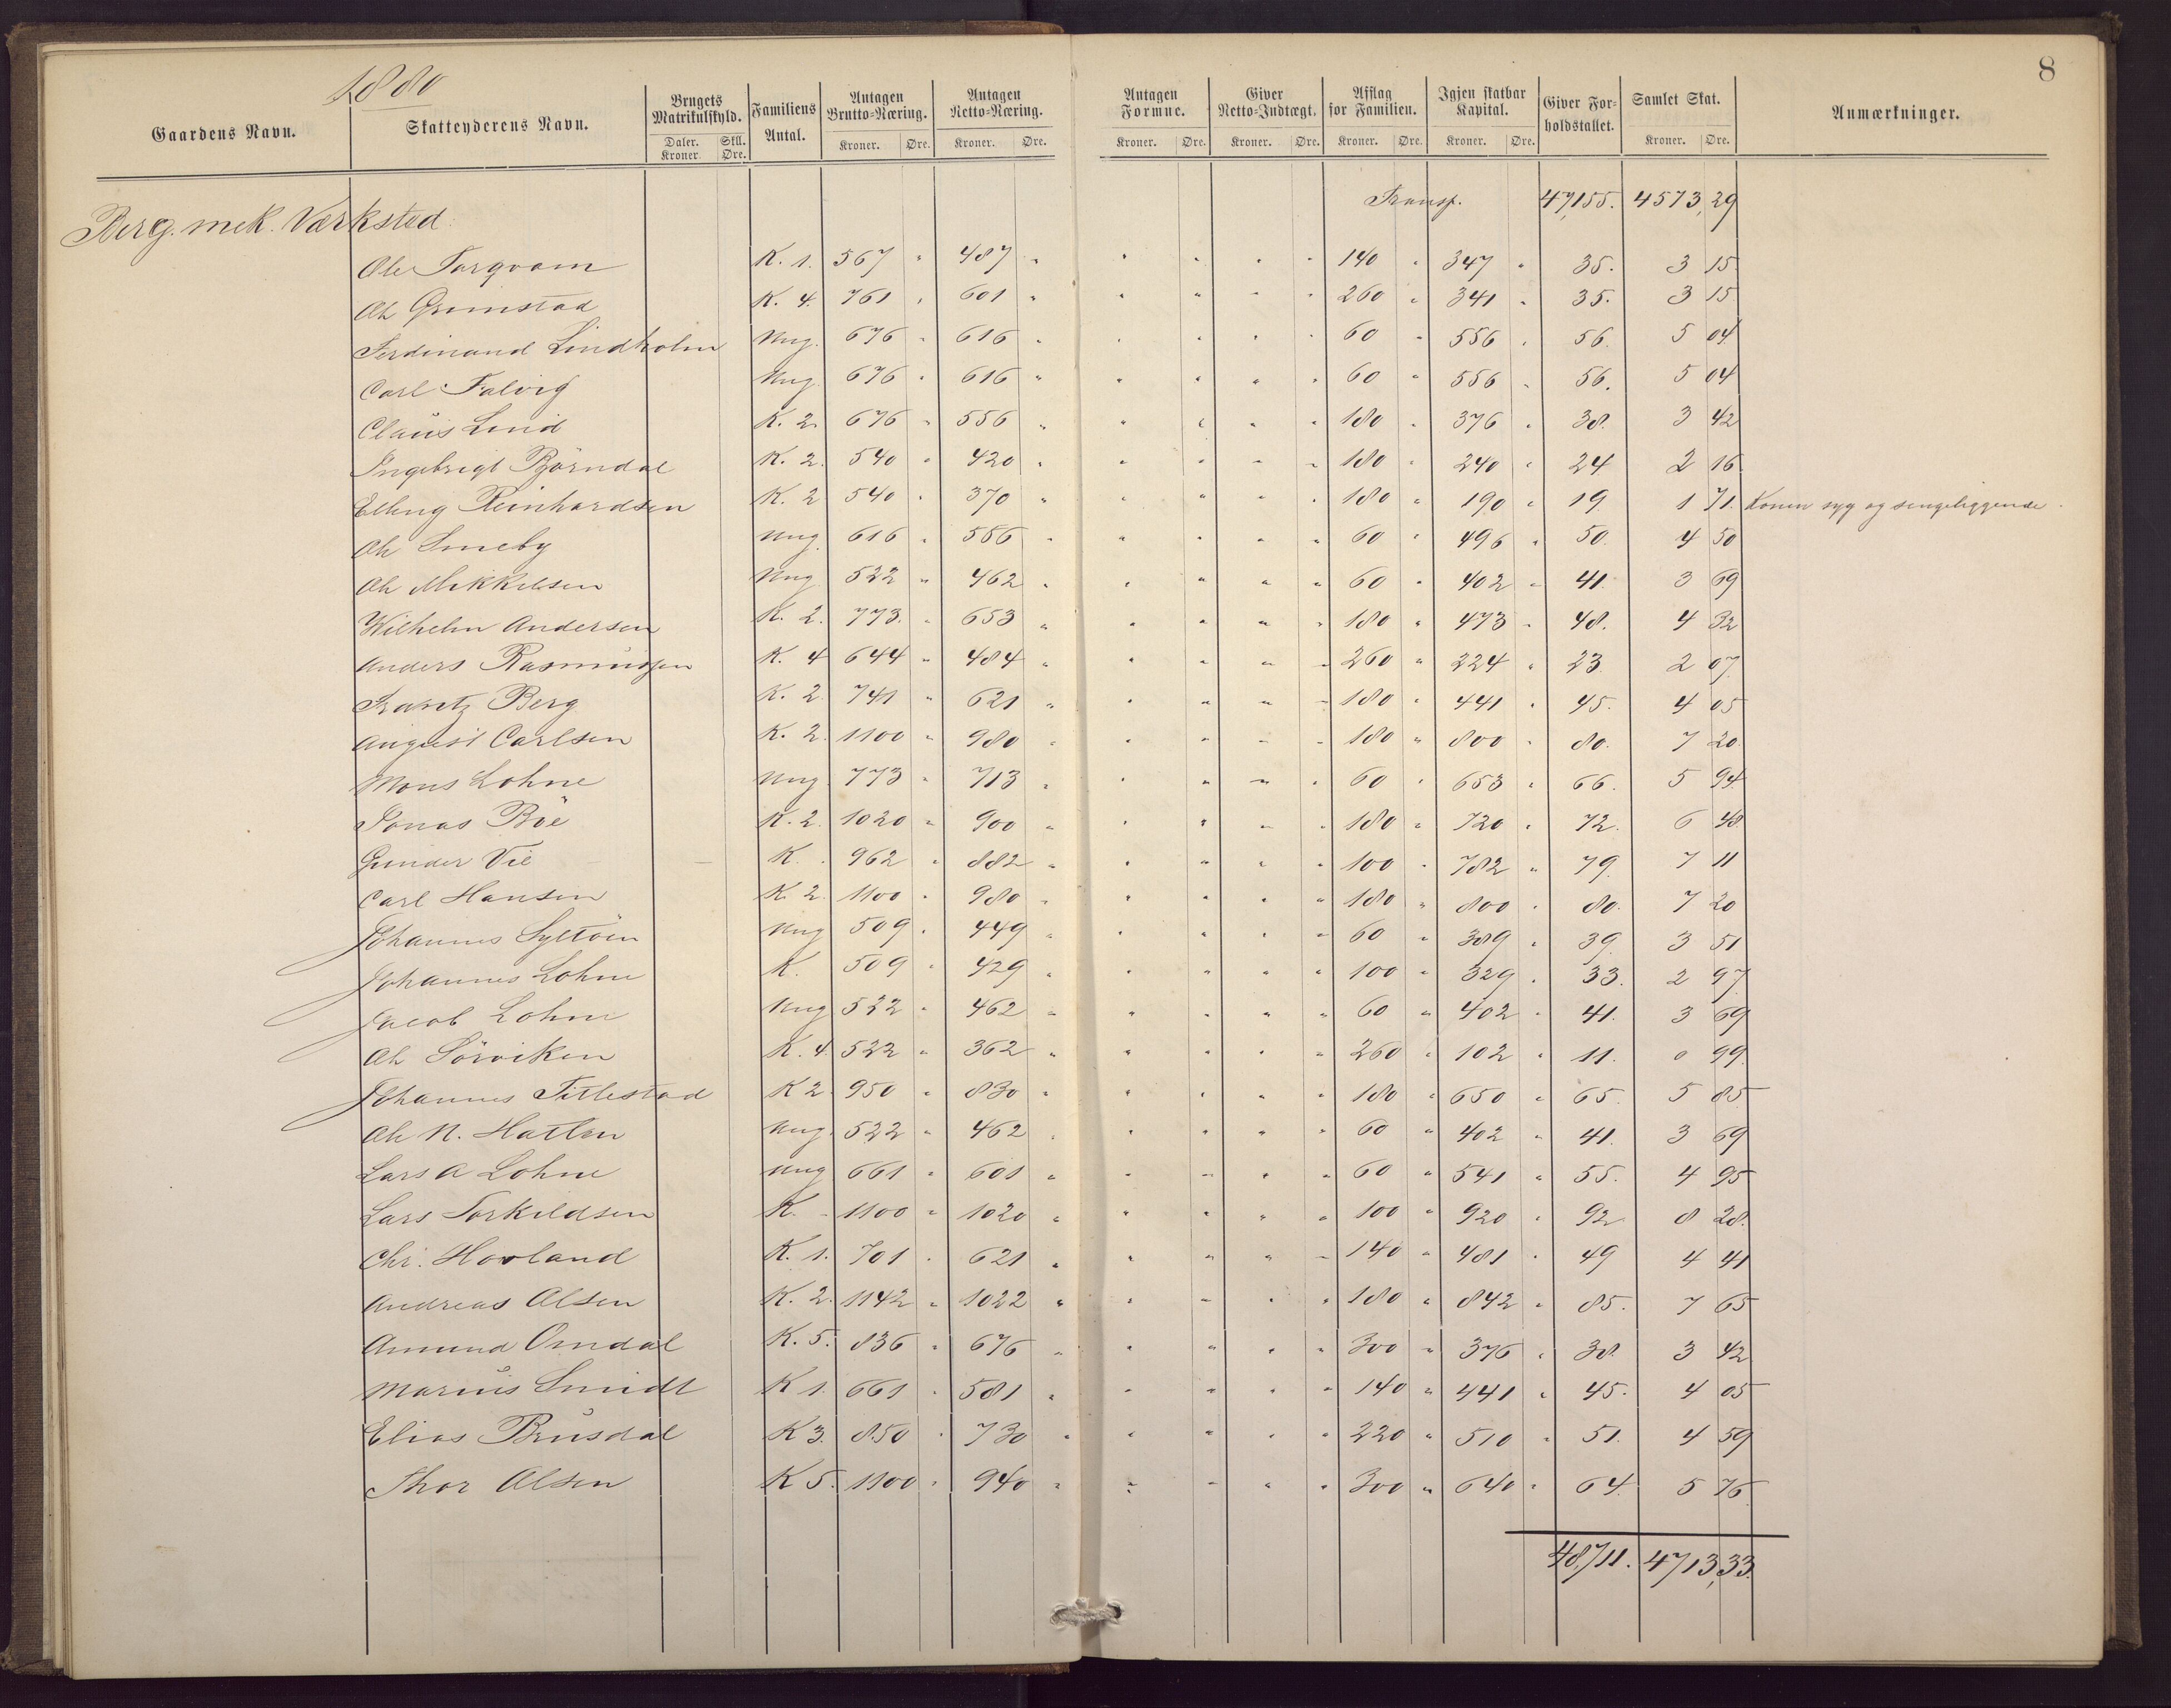 1880
8
Gaardens Navn. Skatteyderens Navn. Brugets Matrikulskyld. Daler. Kroner Skll. Øre. Familiens Antal. Antagen Brutto=Næring. Kroner. Øre. Antagen Netto=Næring. Kroner. Øre. Antagen Formue. Kroner. Øre. Giver Netto=Indtægt. Kroner. Øre. Afslag for Familien. Kroner. Øre. Igjen skatbar Kapital. Kroner. Øre. Giver Forholdstallet. Samlet Skat. Kroner. Øre. Anmærkninger.
Transp. 47,155. 4573,29
Berg. mek. Værksted.
Ole Torqvam K. 1. 567 " 487 " " " " " 140 " 347 " 35. 3 15
Ole Grimstad K. 4. 761 " 601 " " " " " 260 " 341 " 35. 3 15
Ferdinand Lindholm Ung. 676 " 616 " " " " " 60 " 556 " 56. 5 04
Carl Falvig Ung 676 " 616 " " " " " 60 " 556 " 56. 5 04
Claus Lind K. 2. 676 " 556 " " " " " 180 " 376 " 38. 3 42
Ingebrigt Börndal K. 2. 540 " 420 " " " " " 180 " 240 " 24 2 16
Elling Reinhardsen K. 2 540 " 370 " " " " " 180 " 190 " 19. 1 71. Konen syg og sengeliggende.
Ole Smeby Ung. 616 " 556 " " " " " 60 " 496 " 50. 4 50
Ole Mikkelsen Ung 522 " 462 " " " " " 60 " 402 " 41. 3 69
Wilhelm Andersen K. 2. 773. " 653 " " " " " 180 " 473 " 48. 4 32
Anders Rasmussen K. 4 644 " 484 " " " " " 260 " 224 " 23. 2 07.
Frantz Berg K. 2. 741 " 621 " " " " " 180 " 441 " 45. 4 05
August Carlsen K. 2. 1100 " 980 " " " " " 180 " 800 " 80. 7 20.
Mons Lohne Ung 773 " 713 " " " " " 60 " 653 " 66. 5 94
Jonas Böe K. 2. 1020 " 900 " " " " " 180 " 720 " 72. 6 48
Gunder Vie K. . 962 " 882 " " " " " 100 " 782 " 79. 7 11
Carl Hansen K. 2. 1100 " 980 " " " " " 180 " 800 " 80. 7 20
Johannes Syltöen Ung 509 " 449 " " " " " 60 " 389 " 39. 3 51
Johannes Lohne K. 509 " 429 " " " " " 100 " 329 " 33. 2 97
Jacob Lohne Ung 522 " 462 " " " " " 60 " 402 " 41. 3 69
Ole Sörviken K. 4. 522 " 362 " " " " " 260 " 102 " 11. 0 99.
Johannes Titlestad K 2. 950 " 830 " " " " " 180 " 650 " 65. 5 85
Ole N. Hatlen Ung. 522 " 462 " " " " " 60 " 402 " 41. 3 69
Lars A Lohne Ung 661 " 601 " " " " " 60 " 541 " 55. 4 95
Lars Torkildsen K. 1100 " 1020 " " " " " 100 " 920 " 92 8 28.
Chr. Hovland K. 1. 701 " 621 " " " " " 140 " 481 " 49 4 41
Andreas Olsen K. 2. 1142 " 1022 " " " " " 180 " 842 " 85. 7 65
Amund Omdal K. 5. 836 " 676 " " " " " 300 " 376 " 38. 3 42
Marius Smidt K 1. 661 " 581 " " " " " 140 " 441 " 45. 4 05
Elias Brusdal K 3. 850 " 730 " " " " " 220 " 510 " 51. 4 59
Thor Olsen K 5. 1100 " 940 " " " " " 300 " 640 " 64. 5 76
48,711. 4713,33.